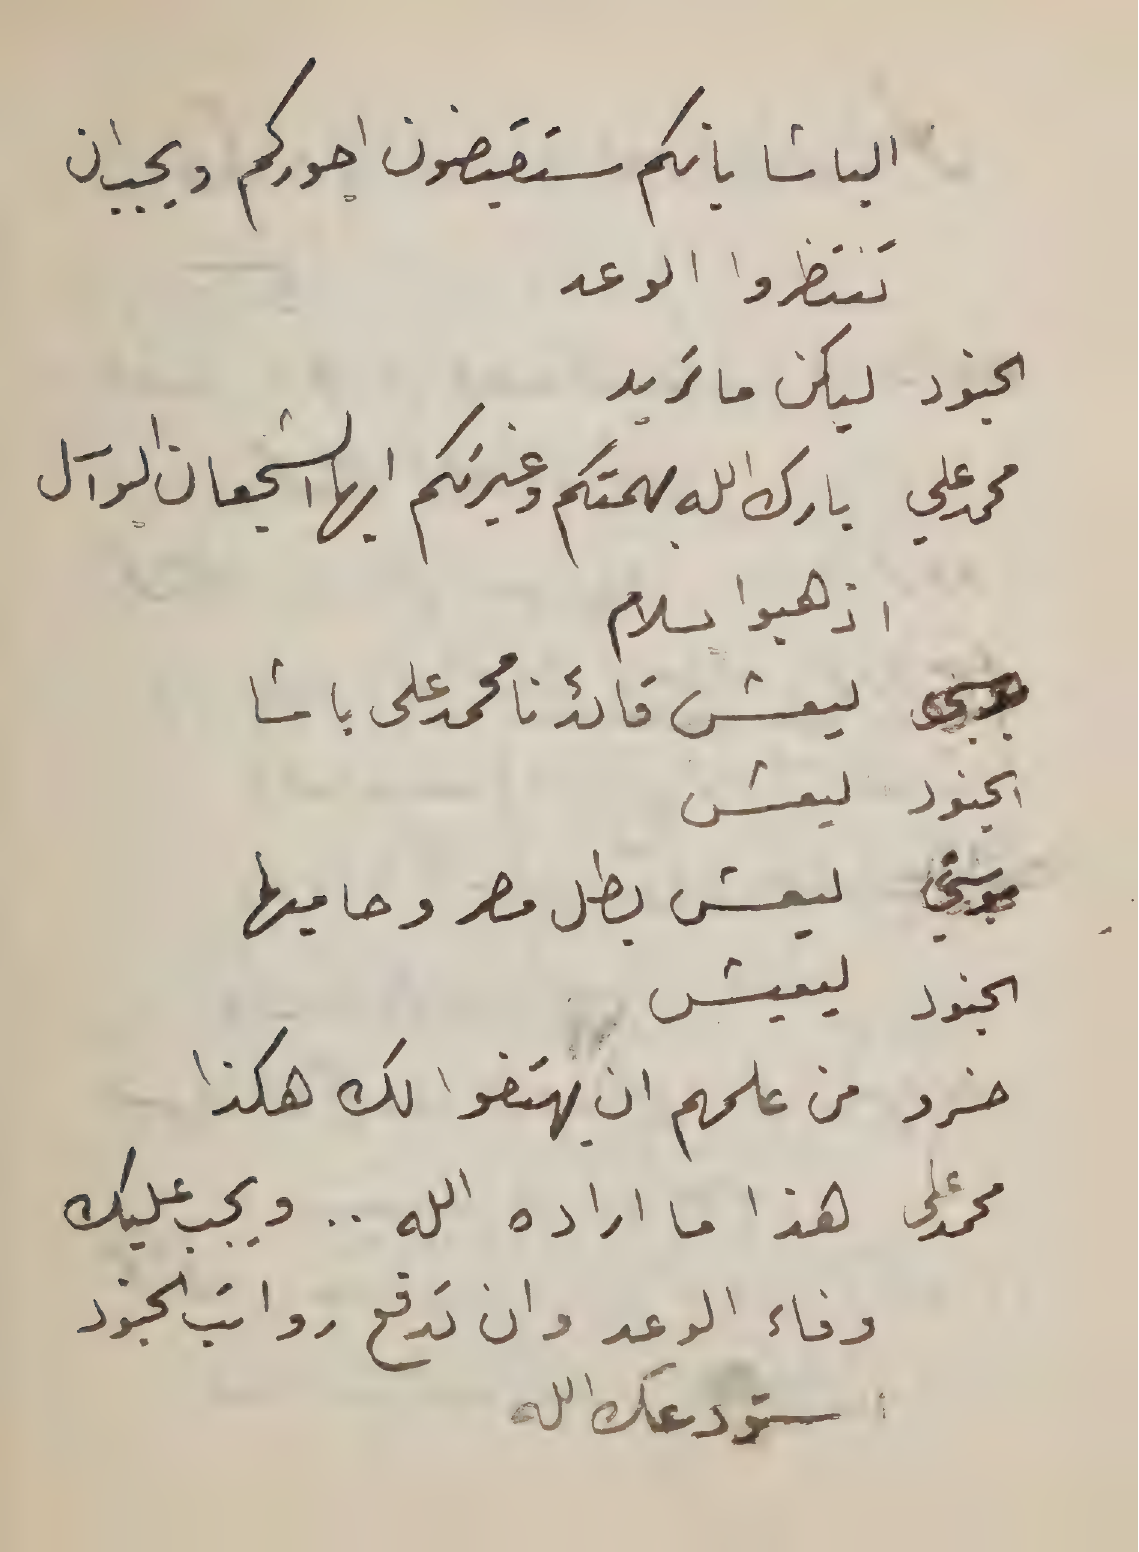 الباشا بانكم ستقبضون اجوركم ويجب ان
تنتظروا الوعد
الجنود ليكن ما تريد
محمد علي بارك الله بهمتكم وغيرتكم ايها الشجعان البواسل
اذهبوا بسلام
ليعش قائدنا محمد علي باشا
الجنود ليعش
ليعش بطل مصر وحاميها
الجنود ليعيش
خسرو من علمهم ان يهتفوا لك هكذا
محمد علي هذا ما اراده الله .. ويجب عليك
وفاء الوعد وان تدفع رواتب الجنود
استودعك الله